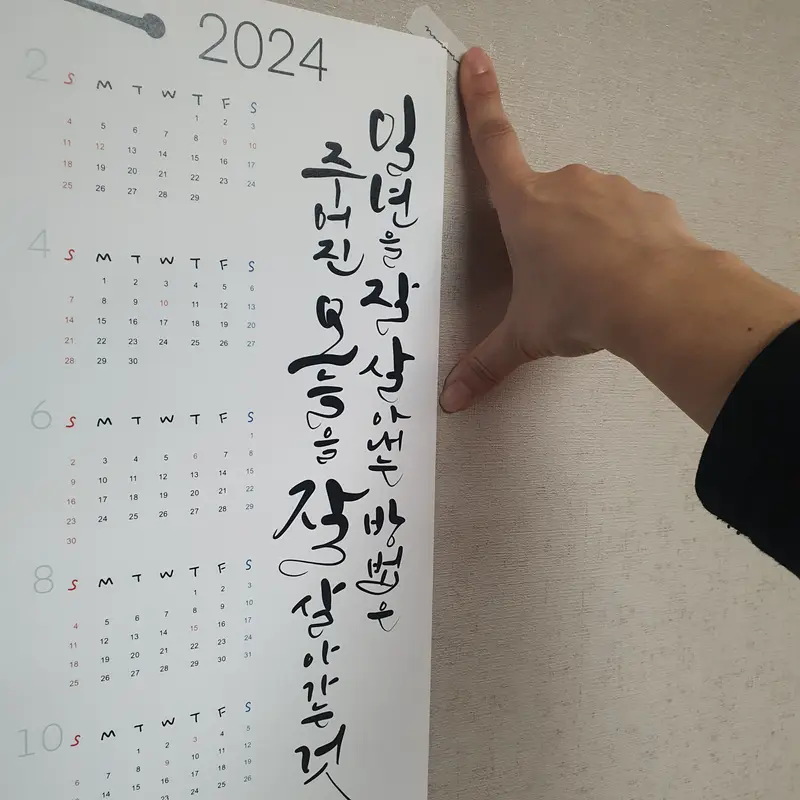 2024
일년을 잘 살아내는 방법은
주어진 오늘을 잘 살아가는 것
2
S M T W T F S
1 2 3
4 5 6 7 8 9 10
11 12 13 14 15 16 17
18 19 20 21 22 23 24
25 26 27 28 29
4
S M T W T F S
1 2 3 4 5 6
7 8 9 10 11 12 13
14 15 16 17 18 19 20
21 22 23 24 25 26 27
28 29 30
6
S M T W T F S
1
2 3 4 5 6 7 8
9 10 11 12 13 14 15
16 17 18 19 20 21 22
23 24 25 26 27 28 29
30
8
S M T W T F S
1 2 3
4 5 6 7 8 9 10
11 12 13 14 15 16 17
18 19 20 21 22 23 24
25 26 27 28 29 30 31
10
S M T W T F S
1 2 3 4 5
6 7 8 9 10 11 12
14 15 16 17 18 19
23 24 25 26